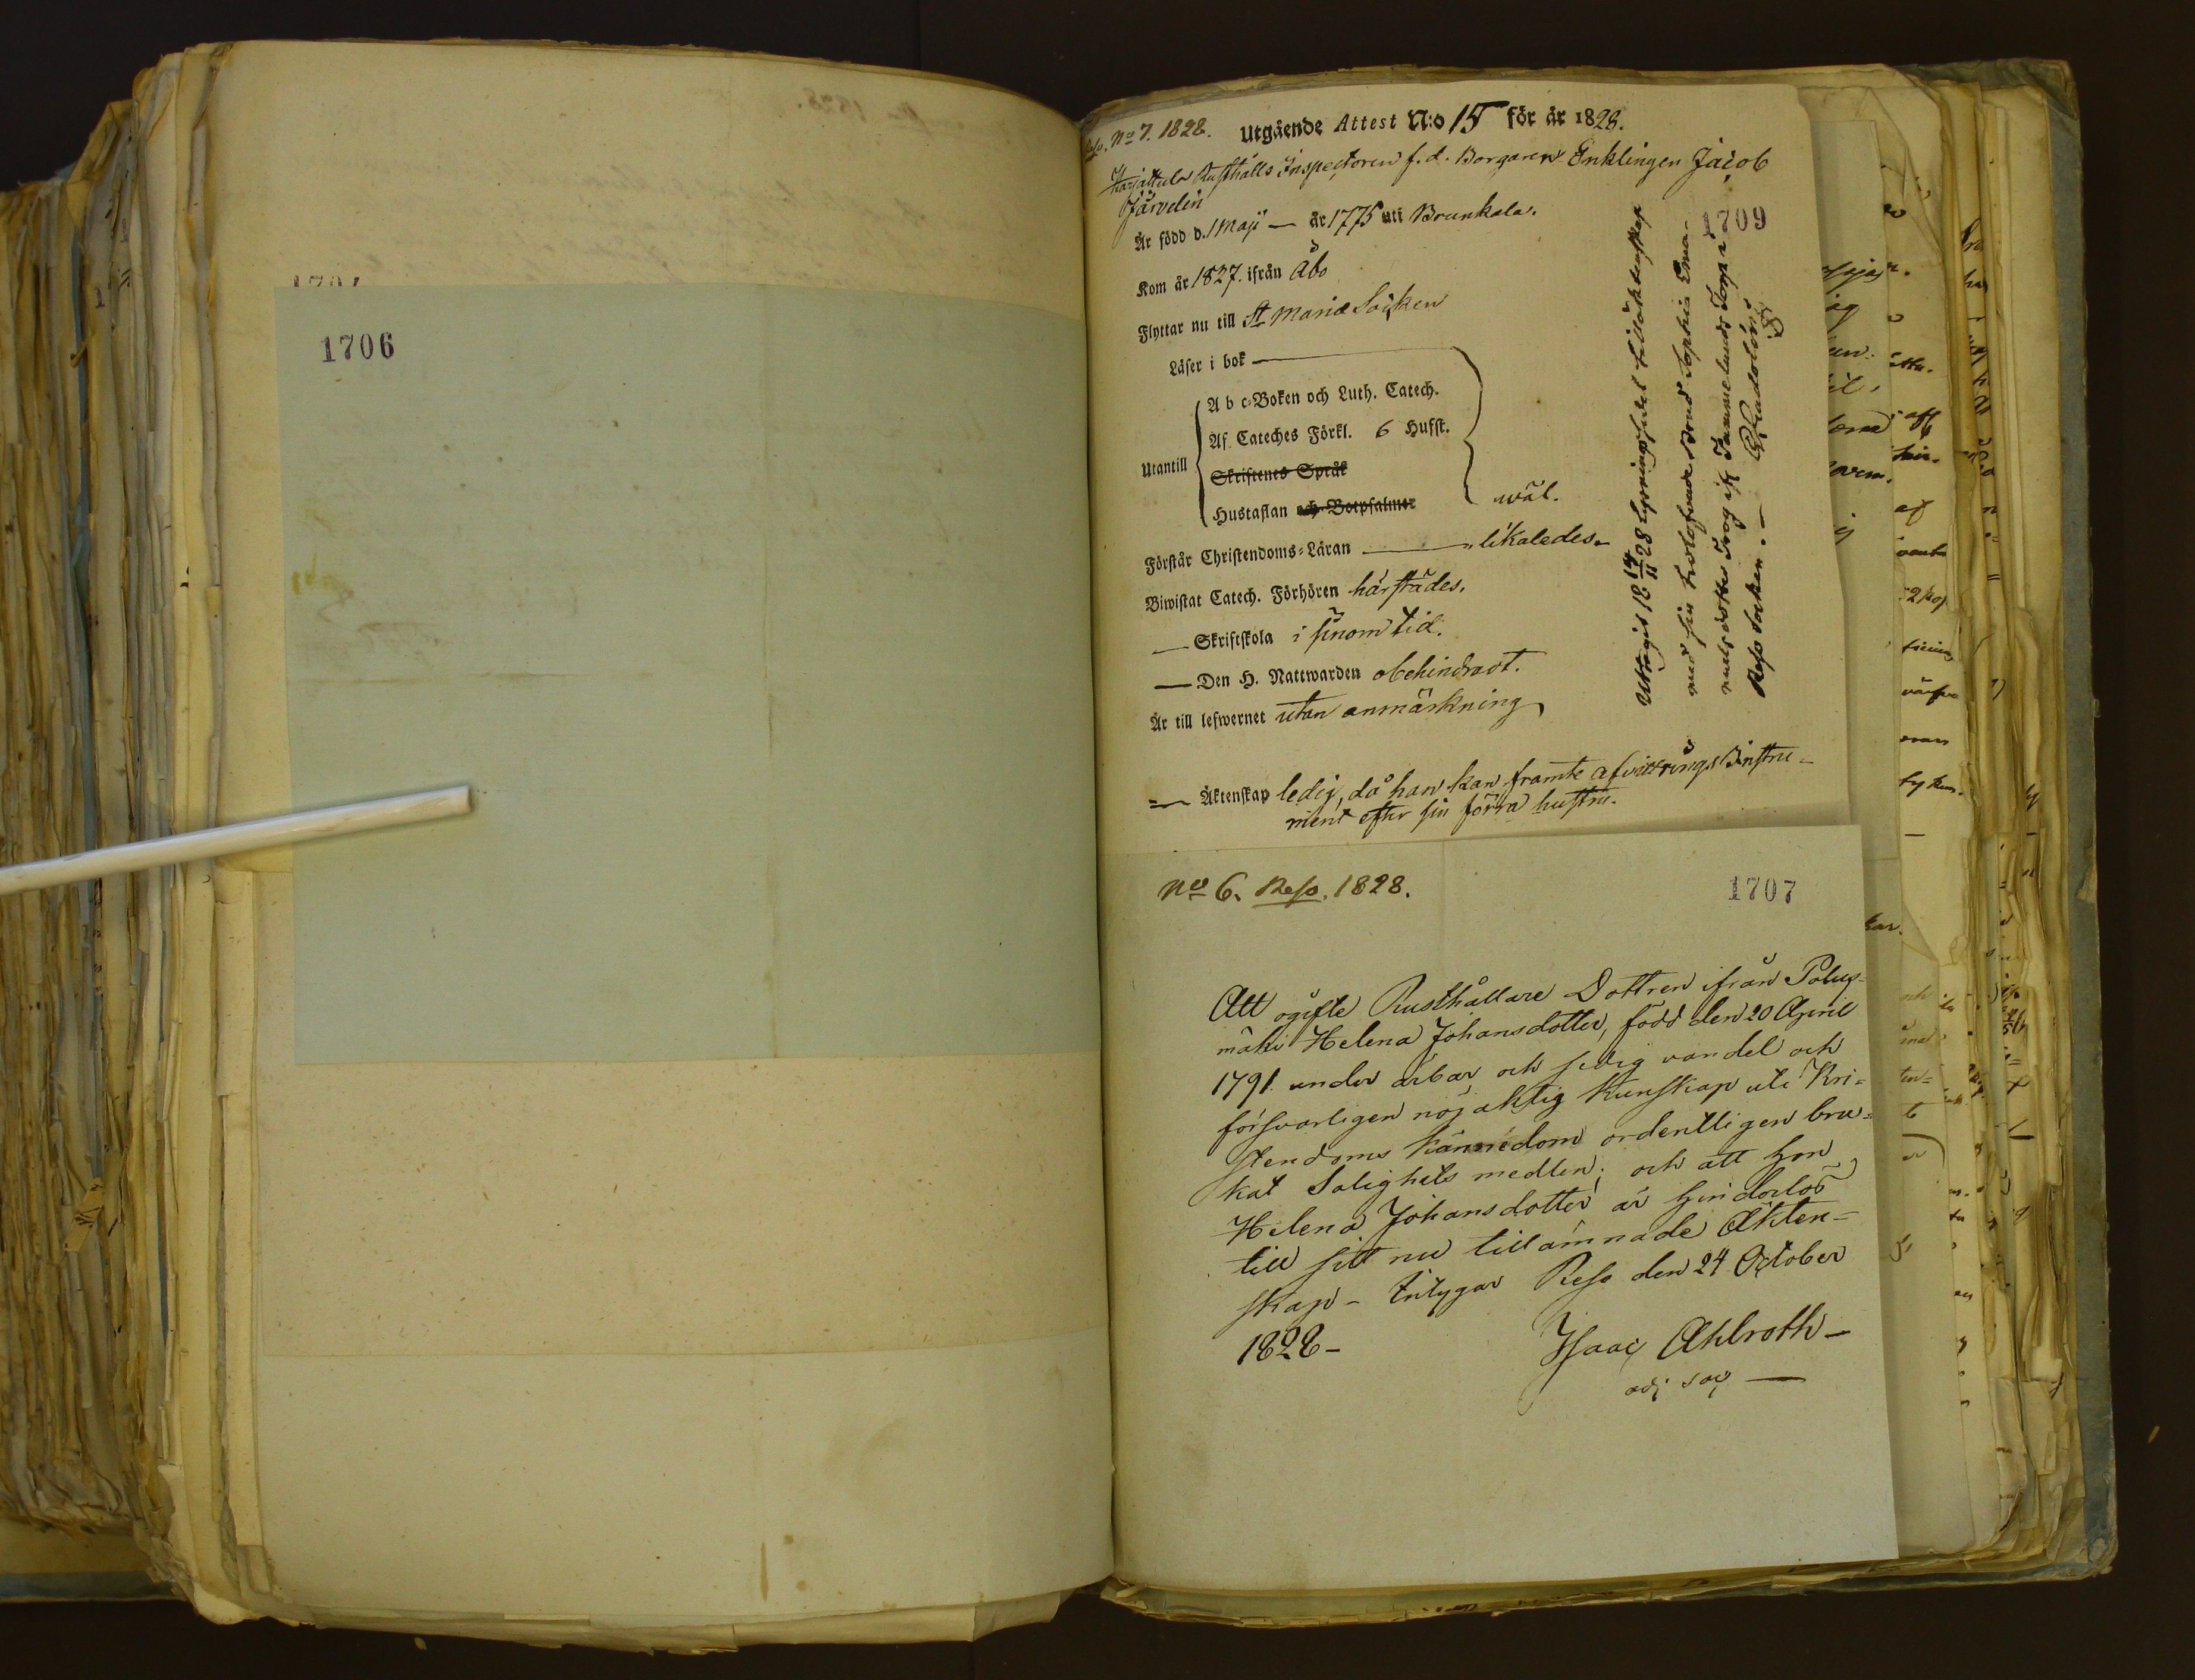 1706
Reso. No 7. 1828. Utgående Attest N:o 15 för år 1828.
Karjattula Rusthålls Inspectoren f. d. Borgaren Enklingen Jacob
Järvelin
1709
Är född d. 1 Maji — år 1775 uti Brunkala.
Kom år 1827. ifrån Åbo
Flyttar nu till St Mariæ Socken
Läser i bok —
Utantill
A b c-Boken och Luth. Catech.
Af Cateches Förkl. 6 Hufst.
Skriftenes Språk
Hustaflan och Botpsalmer wäl.
Förstår Christendoms-Läran — likaledes.
Biwistat Catech. Förhören härstädes.
— Skriftskola i sinom tid.
— Den H. Nattwarden obehindrat.
Är till lefwernet utan anmärkning
— Äktenskap ledig, då han kan framte afvittrings Instru-
ment efter sin förra hustru.
Uttagit 18 14/11 28 Lysningssedel till äktenskap
med sin trolofvade Sophia Ema-
nuels dotter
Reso Socken. —
No 6. Reso. 1828.
1707
Att ogifte Rusthållare Dottren ifrån Polus-
mäki Helena Johansdotter, född den 20 April
1791 under ärbar och sedig vandel och
försvarligen nöjaktig Kunskap uti Kri-
stendoms Kännedom ordentligen bru-
kat Salighets medlen; och att hon
Helena Johansdotter är hinderlös
till sitt nu tillämnade Äkten-
skap - intygar Reso den 24 October
1828 -
Isaac Ahlroth -
adj. sac —